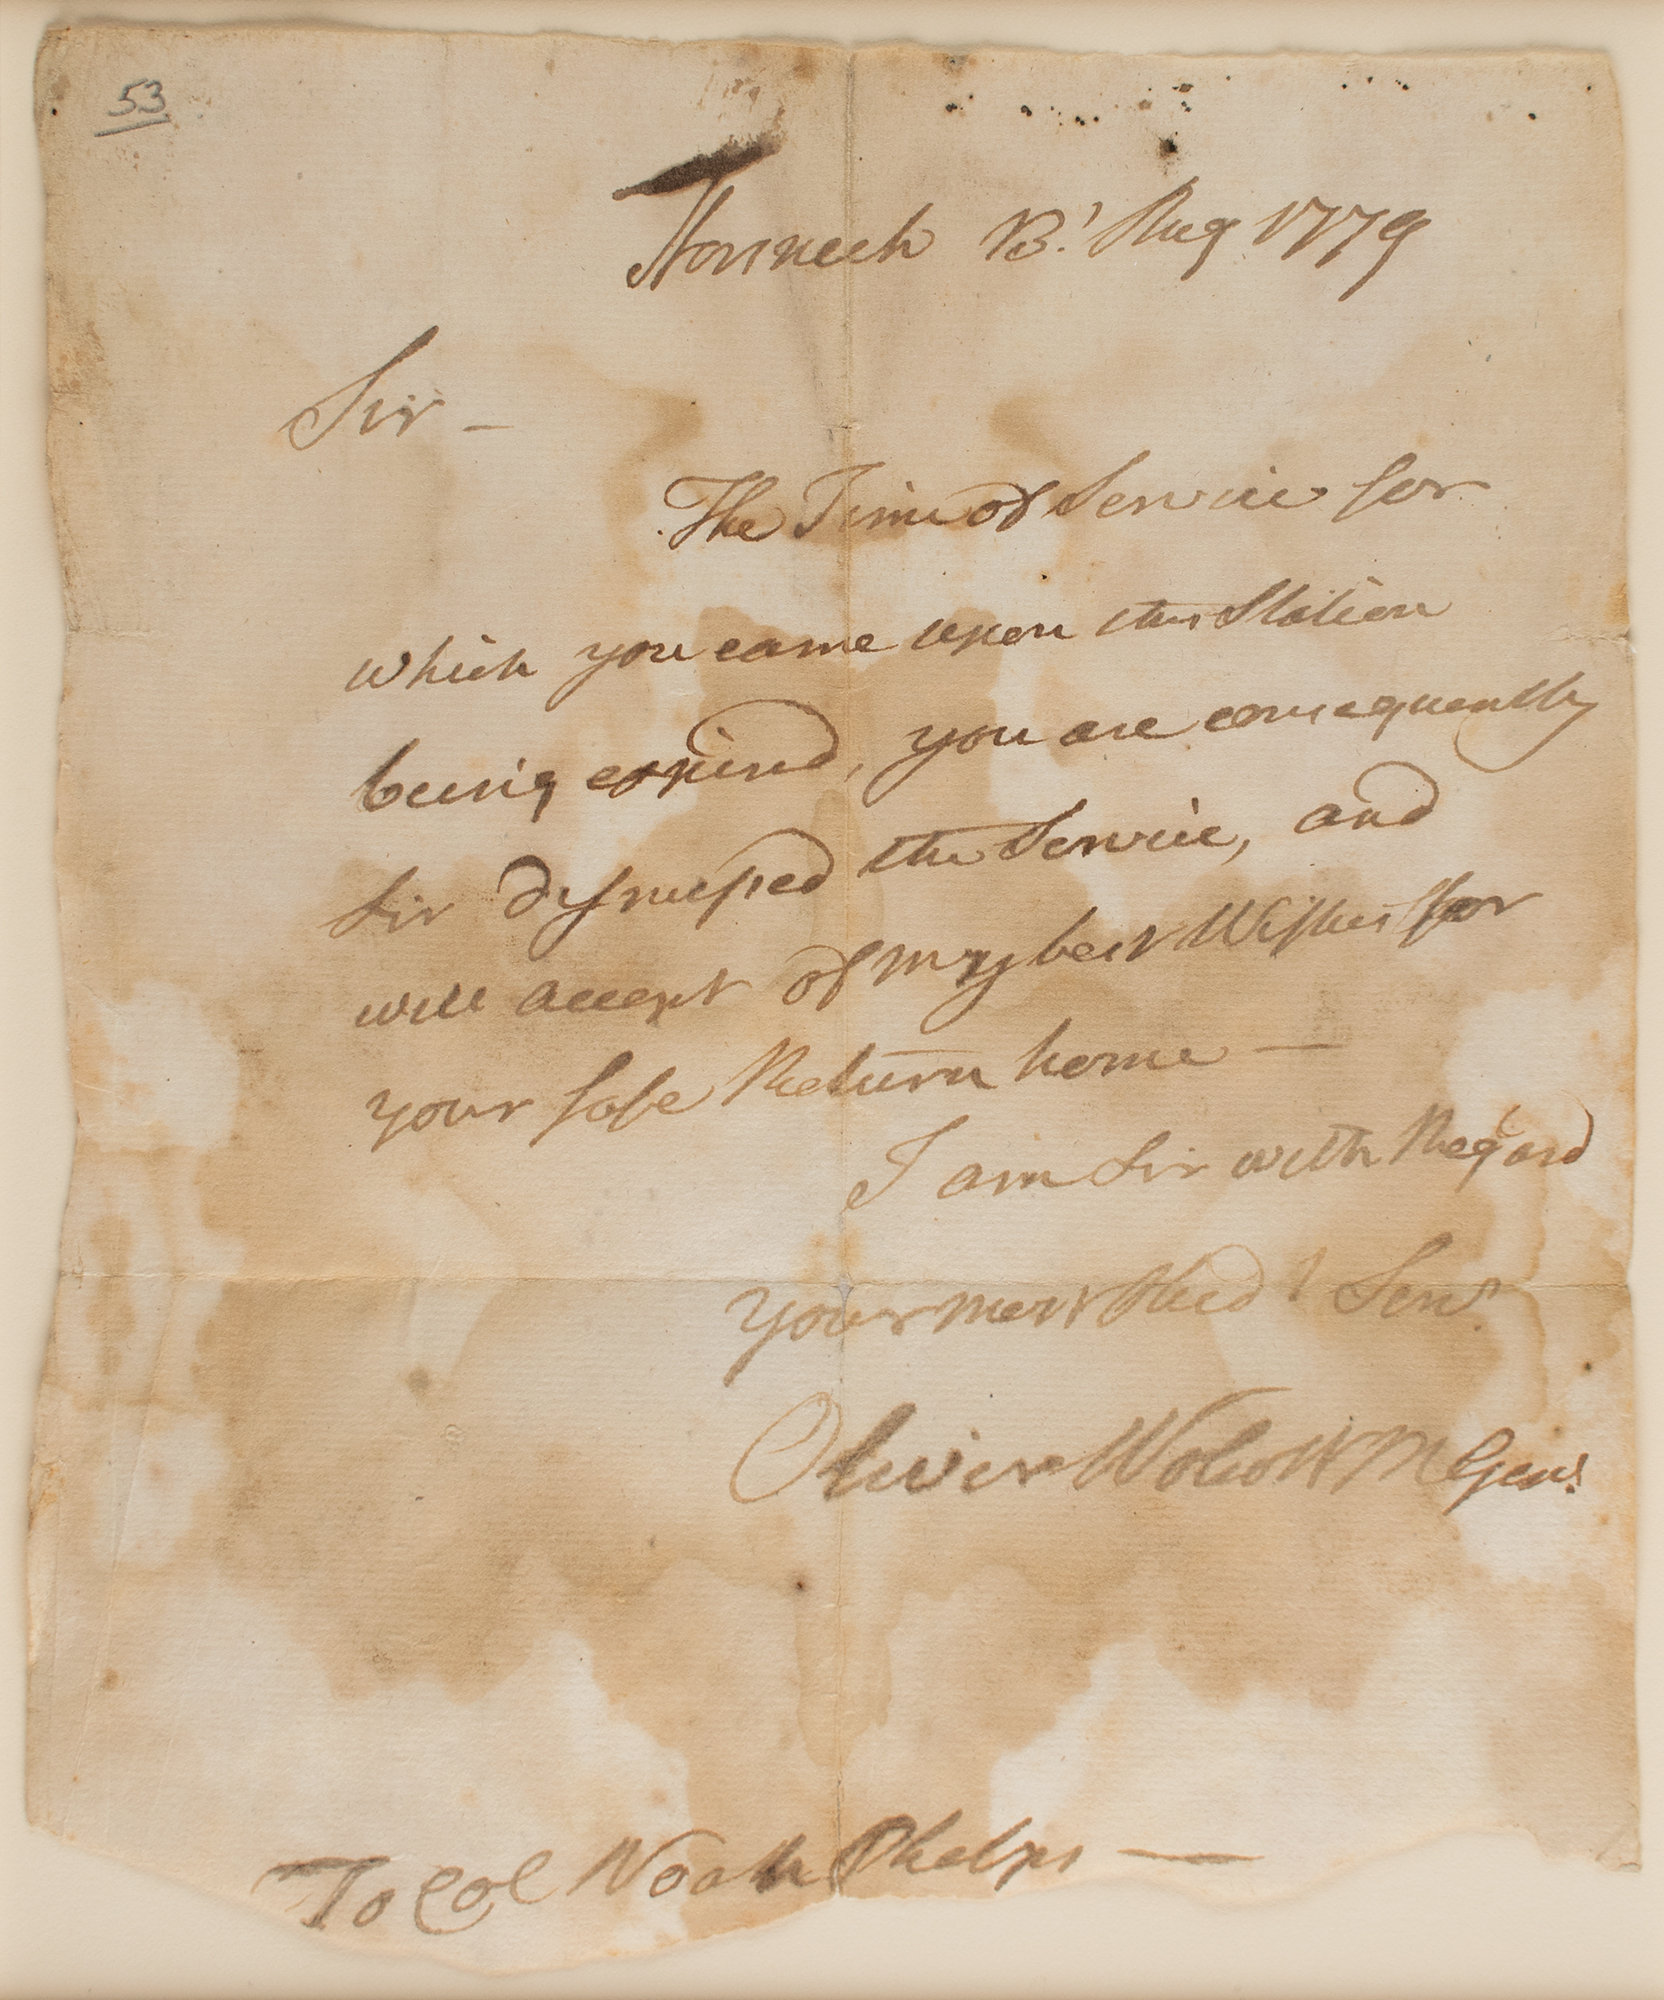 53
Horsneck 13.' Aug 1779
Sir —
The Time of Service for
which you came upon this Station
being expired, you are consequently
Sir dismissed the Service, and
will accept of my best Wishes for
your safe Return home —
I am Sir with Regard
your most Obed! Serv!
Oliver Wolcott M Gen!
To Col Noah Phelps —